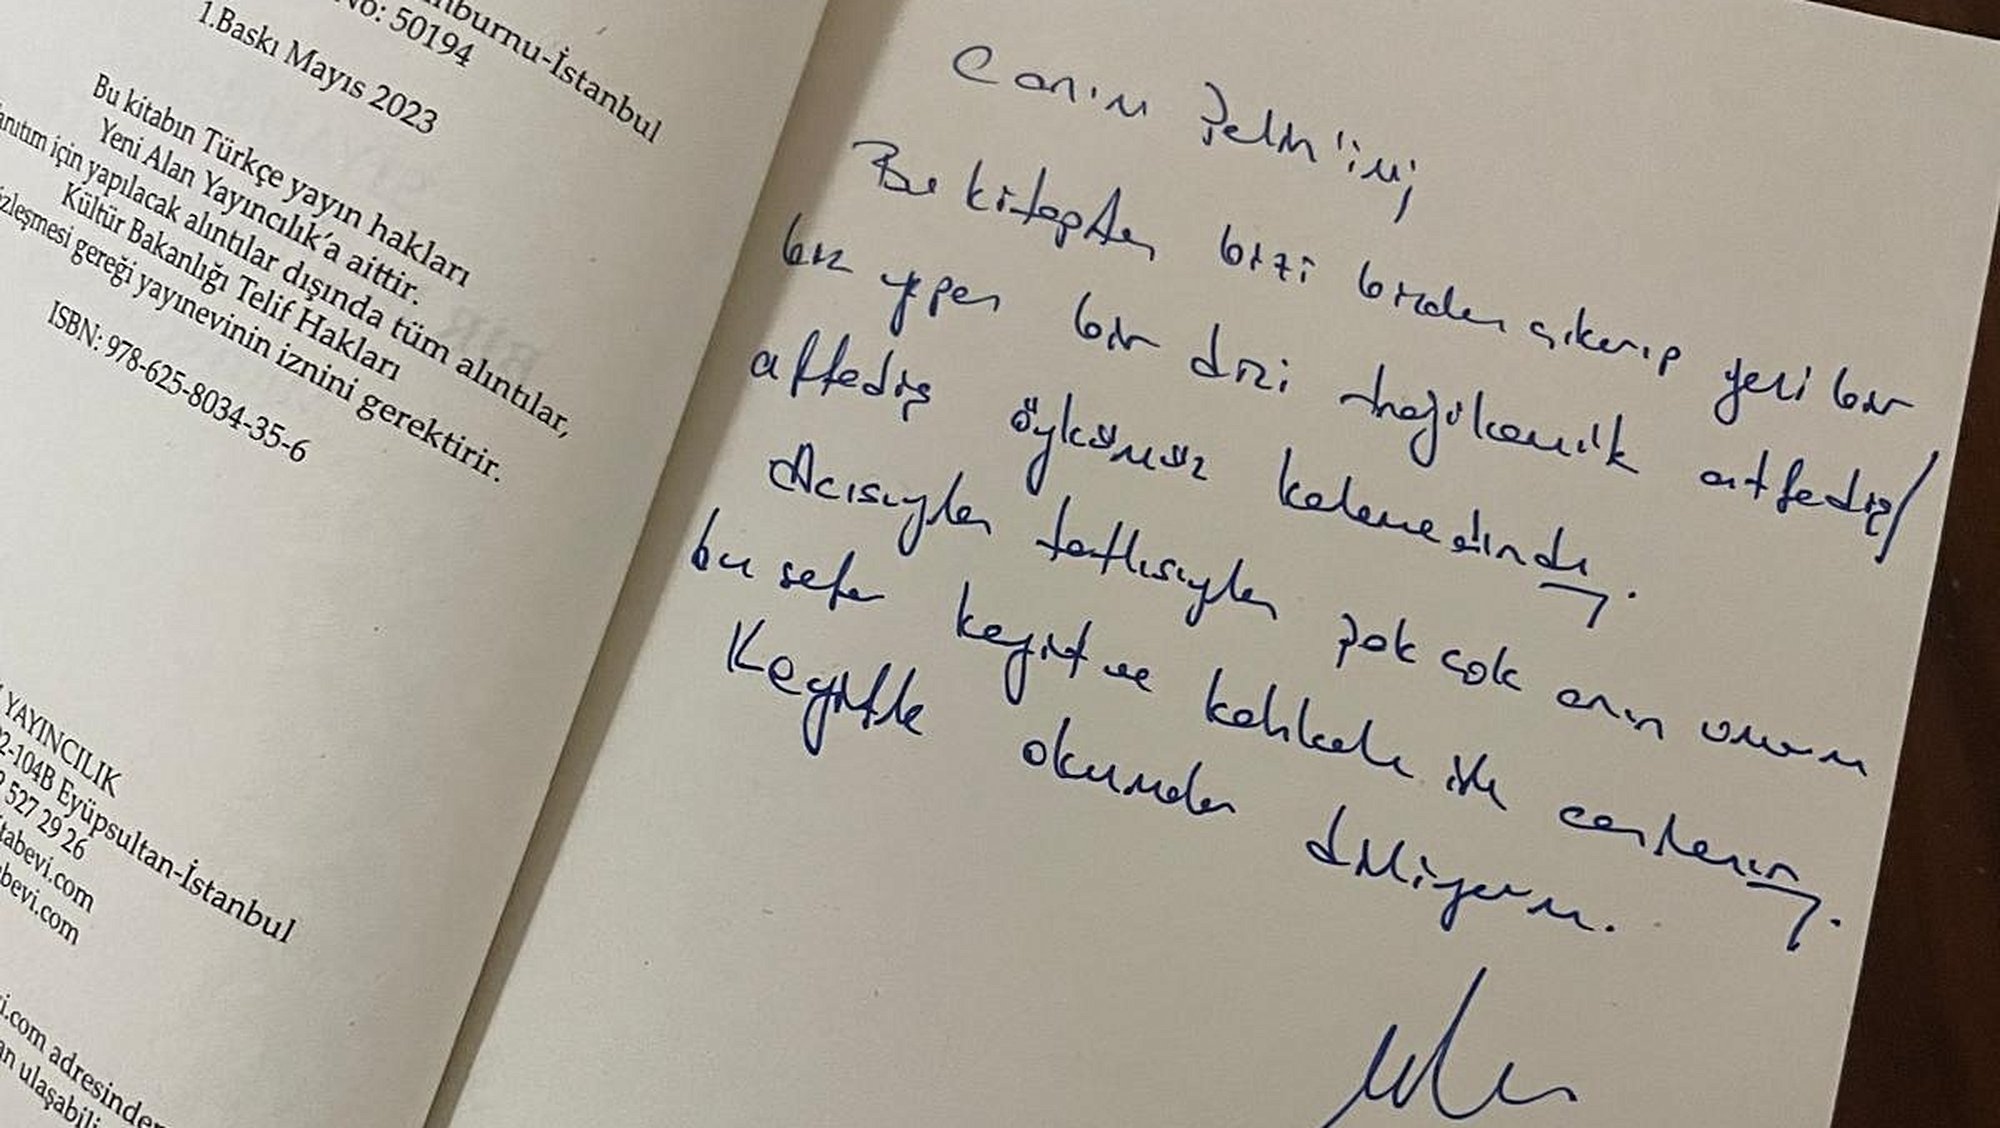 nburnu-İstanbul
No: 50194
1.Baskı Mayıs 2023
Bu kitabın Türkçe yayın hakları
Yeni Alan Yayıncılık'a aittir.
anıtım için yapılacak alıntılar dışında tüm alıntılar,
Kültür Bakanlığı Telif Hakları
özleşmesi gereği yayınevinin iznini gerektirir.
ISBN: 978-625-8034-35-6
YAYINCILIK
02-104B Eyüpsultan-İstanbul
527 29 26
itabevi.com
abevi.com
i.com adresinden
an ulaşabili
Canım
Bu kitapta bizi bizden çıkarıp yeni bir
biz yapan bir dizi affediş/
affediş öykümüz kaleme alındı.
Acısıyla tatlısıyla çok anın umarım
bu sefer keyif ve kahkaha ile canlanır.
Keyifle okumalar diliyorum.